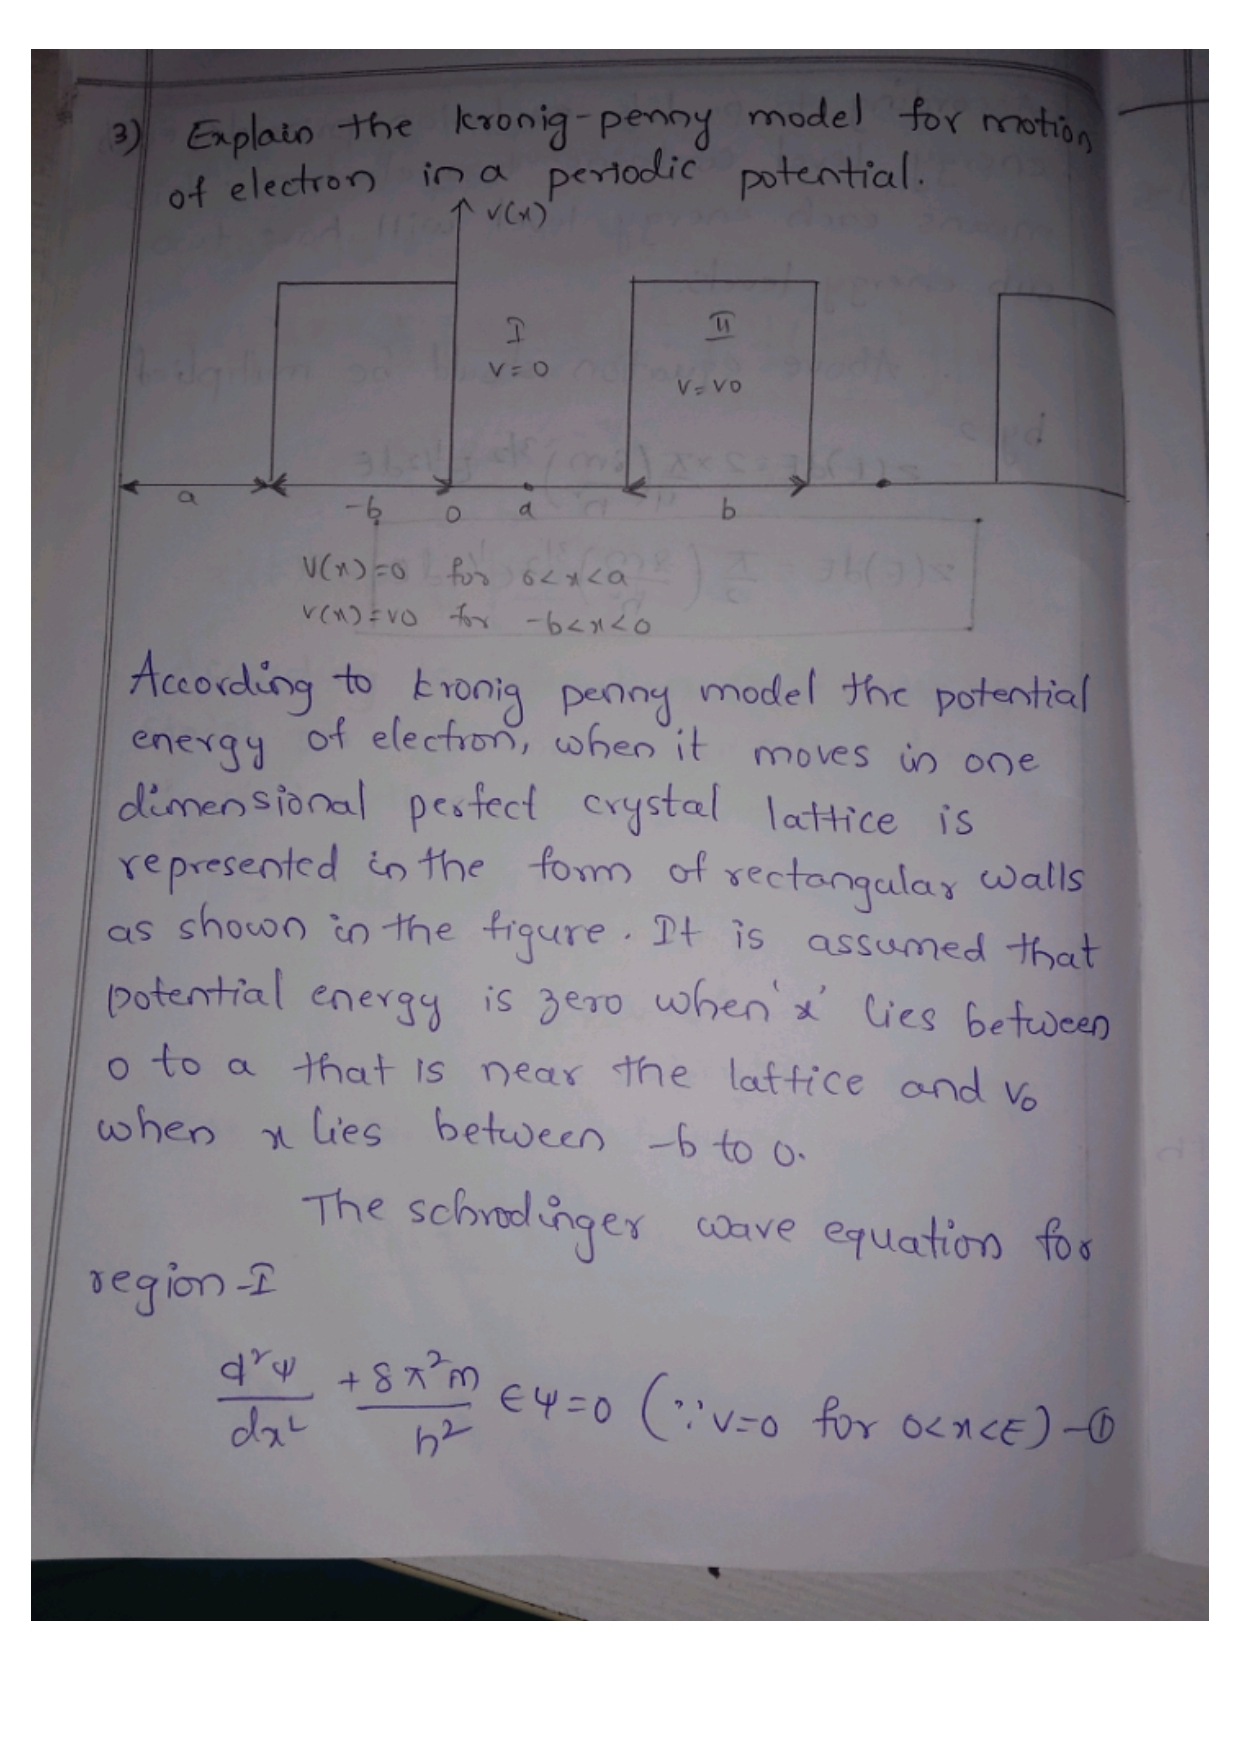 3) Explain the kronig-penny model for motion
of electron in a periodic potential.
V(x)
I
V=0
II
V=V0
a
-b
0
a
b
V(x)=0 for 0<x<a
V(x)=V0 for -b<x<0
According to kronig penny model the potential
energy of electron, when it moves in one
dimensional perfect crystal lattice is
represented in the form of rectangular walls
as shown in the figure. It is assumed that
potential energy is zero when 'x' lies between
0 to a that is near the lattice and V₀
when x lies between -b to 0.
The schrodinger wave equation for
region-I
d²ψ/dx² + 8π²m/h² Eψ=0 (∵V=0 for 0<x<E) -①